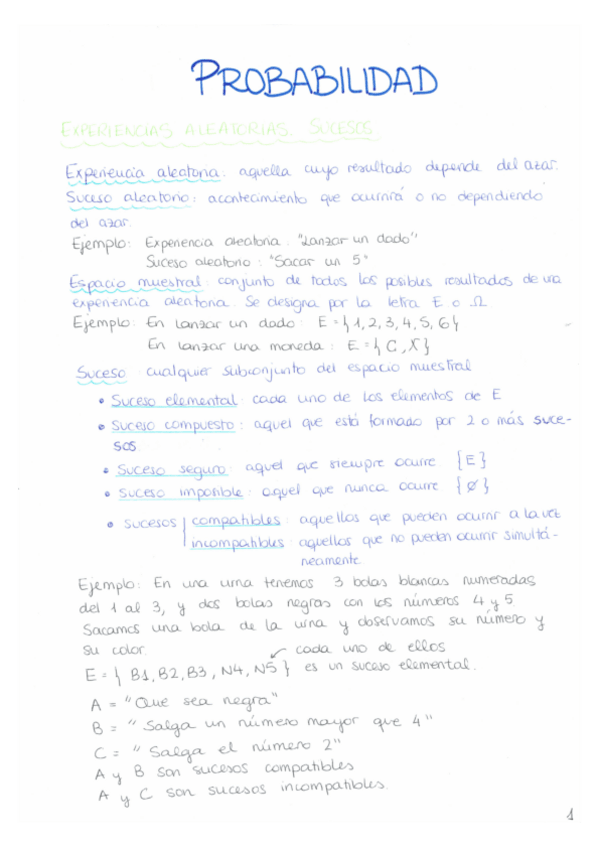 PROBABILIDAD
EXPERIENCIAS ALEATORIAS. SUCESOS
Experiencia aleatoria: aquella cuyo resultado depende del azar.
Suceso aleatorio: acontecimiento que ocurrirá o no dependiendo
del azar.
Ejemplo: Experiencia aleatoria: "Lanzar un dado"
Suceso aleatorio: "Sacar un 5"
Espacio muestral: conjunto de todos los posibles resultados de una
experiencia aleatoria. Se designa por la letra E o Ω
Ejemplo: En lanzar un dado: E = {1, 2, 3, 4, 5, 6}
En lanzar una moneda: E = {C, X}
Suceso: cualquier subconjunto del espacio muestral
• Suceso elemental: cada uno de los elementos de E
• Suceso compuesto: aquel que está formado por 2 o más suce-
sos.
• Suceso seguro: aquel que siempre ocurre {E}
• Suceso imposible: aquel que nunca ocurre {Ø}
• Sucesos compatibles: aquellos que pueden ocurrir a la vez
incompatibles: aquellos que no pueden ocurrir simultá-
neamente.
Ejemplo: En una urna tenemos 3 bolas blancas numeradas
del 1 al 3, y dos bolas negras con los números 4 y 5
Sacamos una bola de la urna y observamos su número y
su color.
cada uno de ellos
E = { B1, B2, B3, N4, N5 } es un suceso elemental.
A = "Que sea negra"
B = "Salga un número mayor que 4"
C = "Salga el número 2"
A y B son sucesos compatibles
A y C son sucesos incompatibles.
1